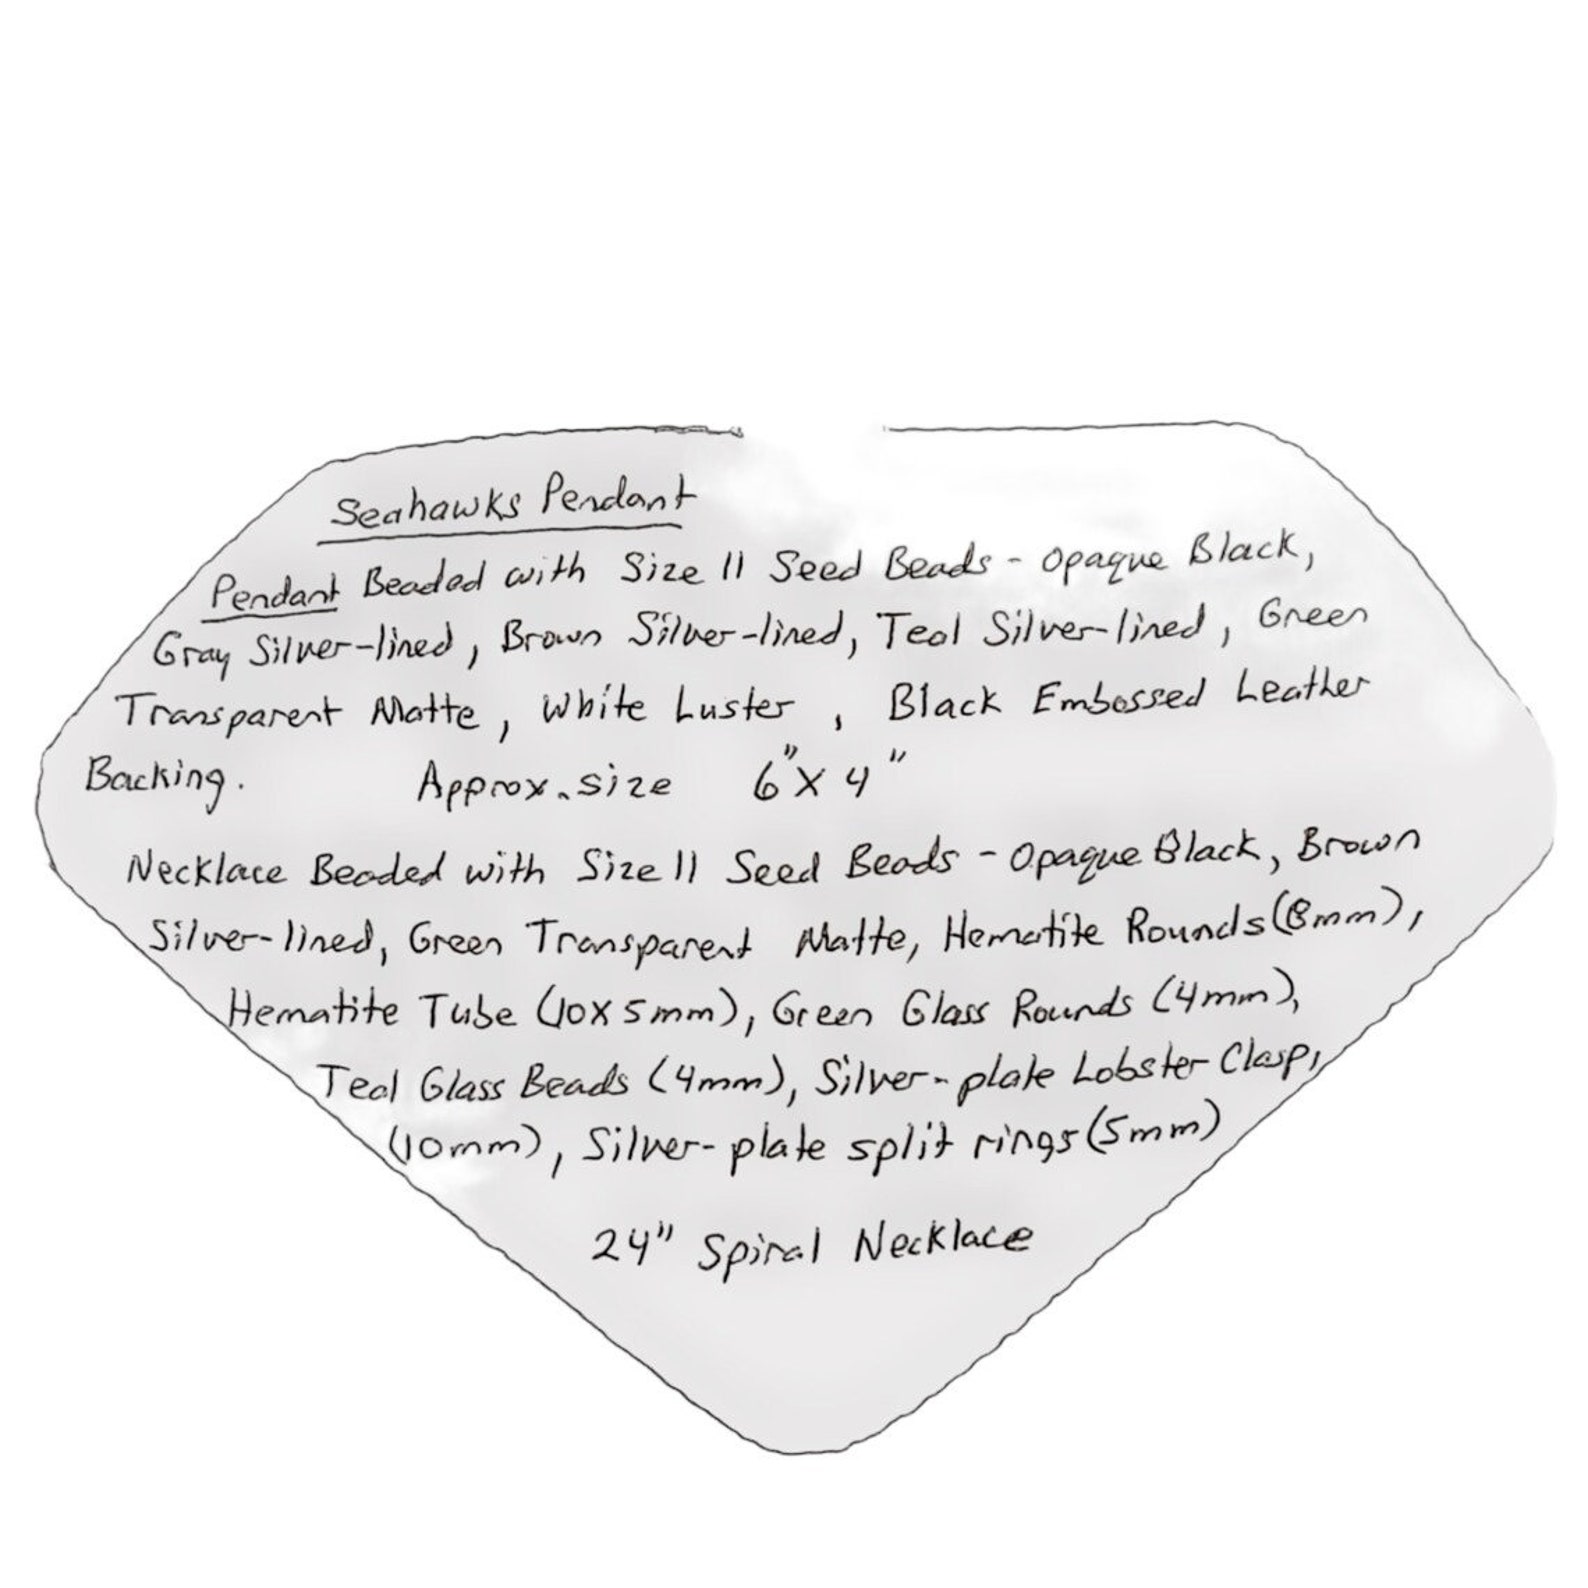 Seahawks Pendant
Pendant Beaded with Size 11 Seed Beads - Opaque Black,
Gray Silver-lined, Brown Silver-lined, Teal Silver-lined, Green
Transparent Matte, White Luster, Black Embossed Leather
Backing. Approx. size 6" X 4"
Necklace Beaded with Size 11 Seed Beads - Opaque Black, Brown
Silver-lined, Green Transparent Matte, Hematite Rounds (8mm),
Hematite Tube (10X5mm), Green Glass Rounds (4mm),
Teal Glass Beads (4mm), Silver-plate Lobster Clasp,
(10mm), Silver-plate split rings (5mm)
24" Spiral Necklace